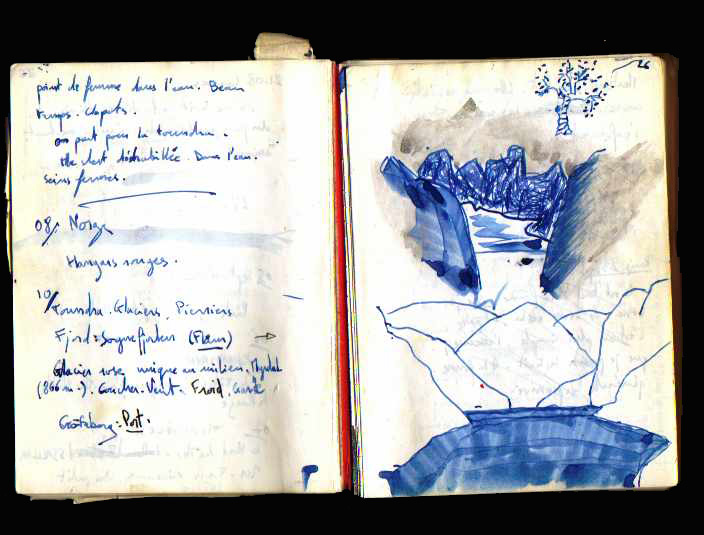 point de femme dans l'eau. Beau
temps. Clapots.
on part pour la toundra.
Elle s'est déshabillée. Dans l'eau.
seins fermes.
08/ Norge
Hangars rouges.
10/ Toundra. Glaciers. Pierriers
Fjord: Sognefjorden (Flåm) →
Glacier rose unique au milieu. Myrdal
(866 m.). Coucher. Vent. Froid.
Göteborg: Port.
26